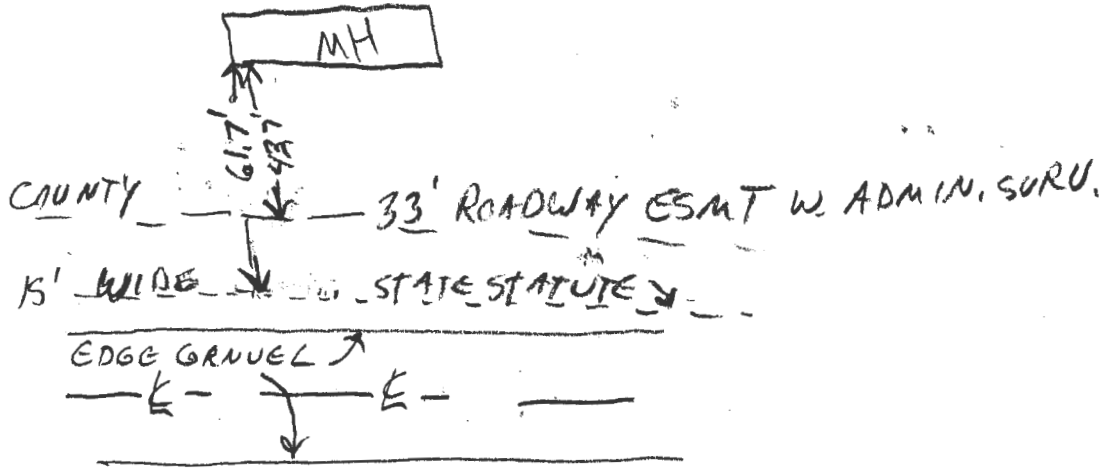 MH
61.7'
43.7'
COUNTY 33' ROADWAY ESMT W. ADMIN. SURV.
15' WIDE STATE STATUTE
EDGE GRAVEL
℄ ℄